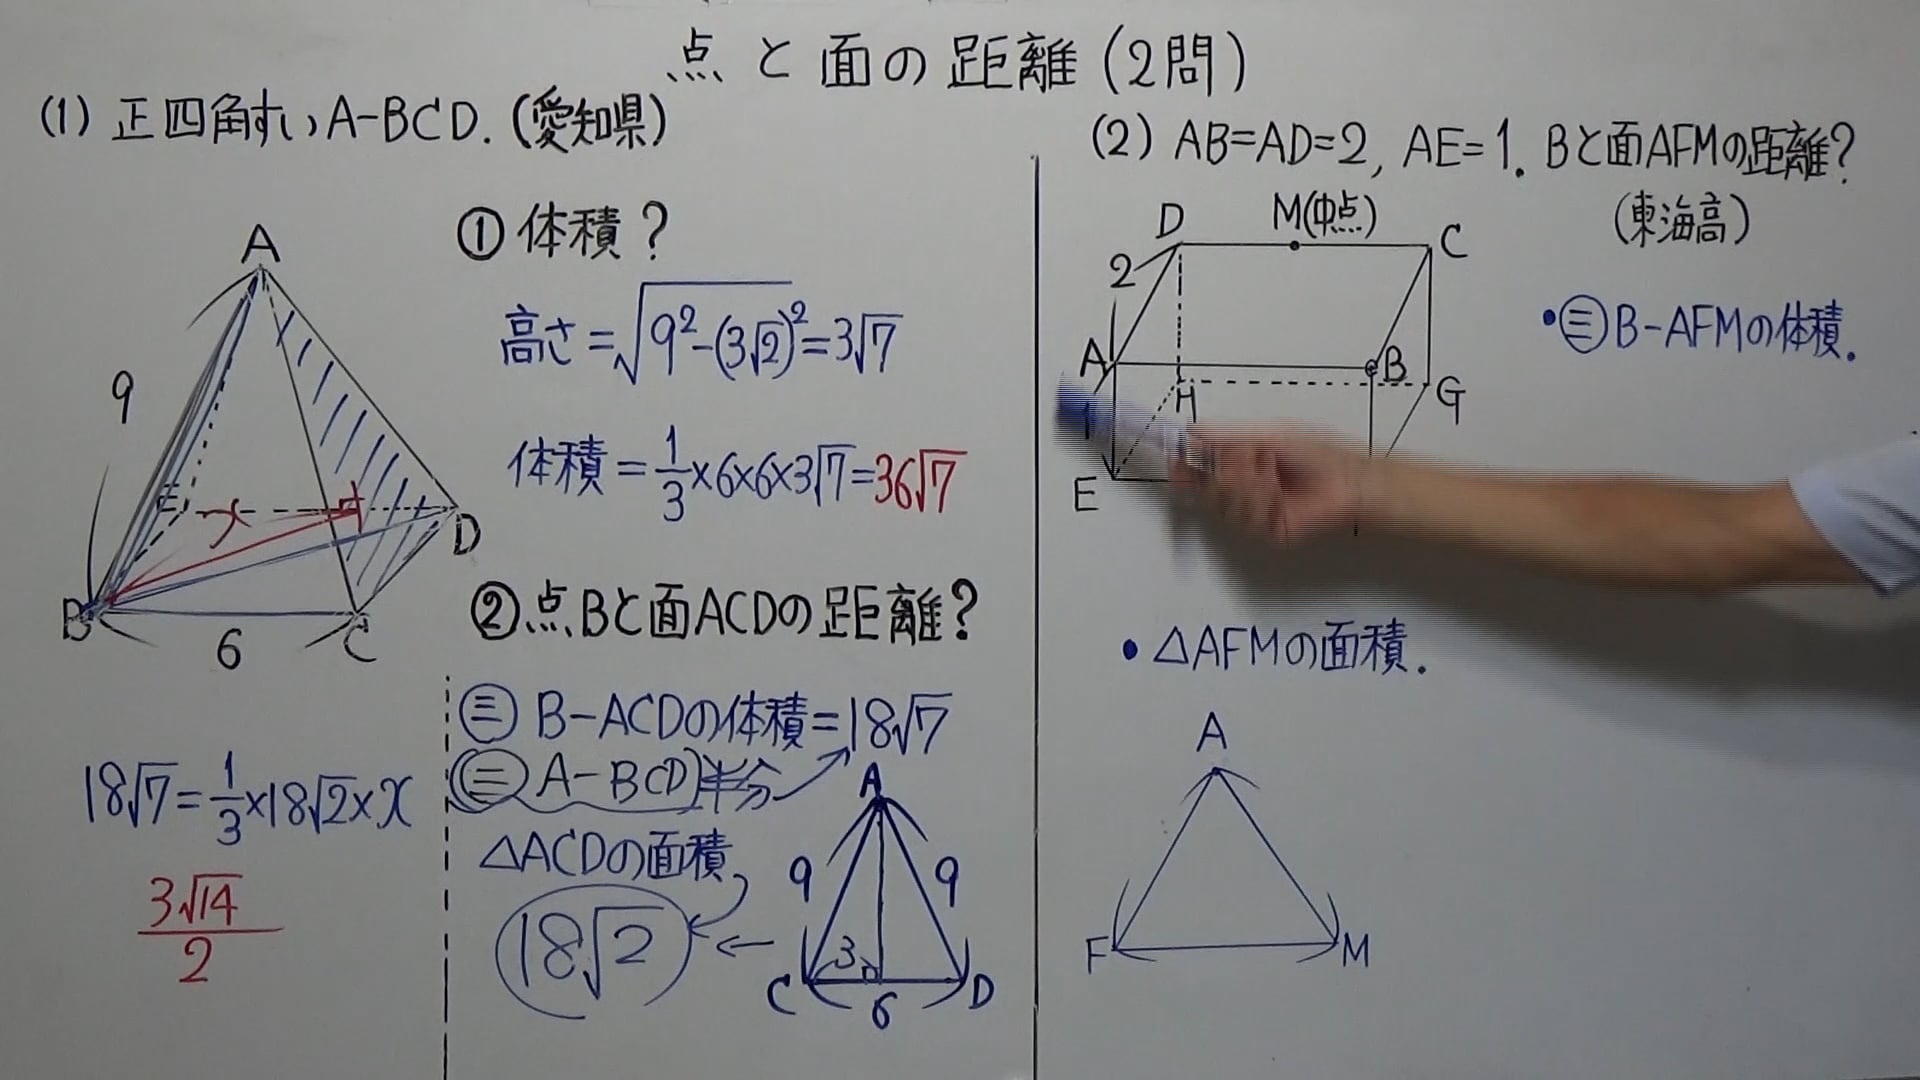 点と面の距離(2問)
(1) 正四角すいA-BCD.(愛知県)
A
9
B
6
C
D
E
① 体積?
高さ=√9²-(3√2)²=3√7
体積=1/3×6×6×3√7=36√7
② 点Bと面ACDの距離?
㊂ B-ACDの体積=18√7
㊂ A-BCD 半分
△ACDの面積
18√2
A
9
9
3
C
6
D
18√7=1/3×18√2×x
3√14/2
(2) AB=AD=2, AE=1. Bと面AFMの距離?
(東海高)
D
M(中点)
C
2
A
B
H
G
1
E
•㊂B-AFMの体積.
• △AFMの面積.
A
F
M